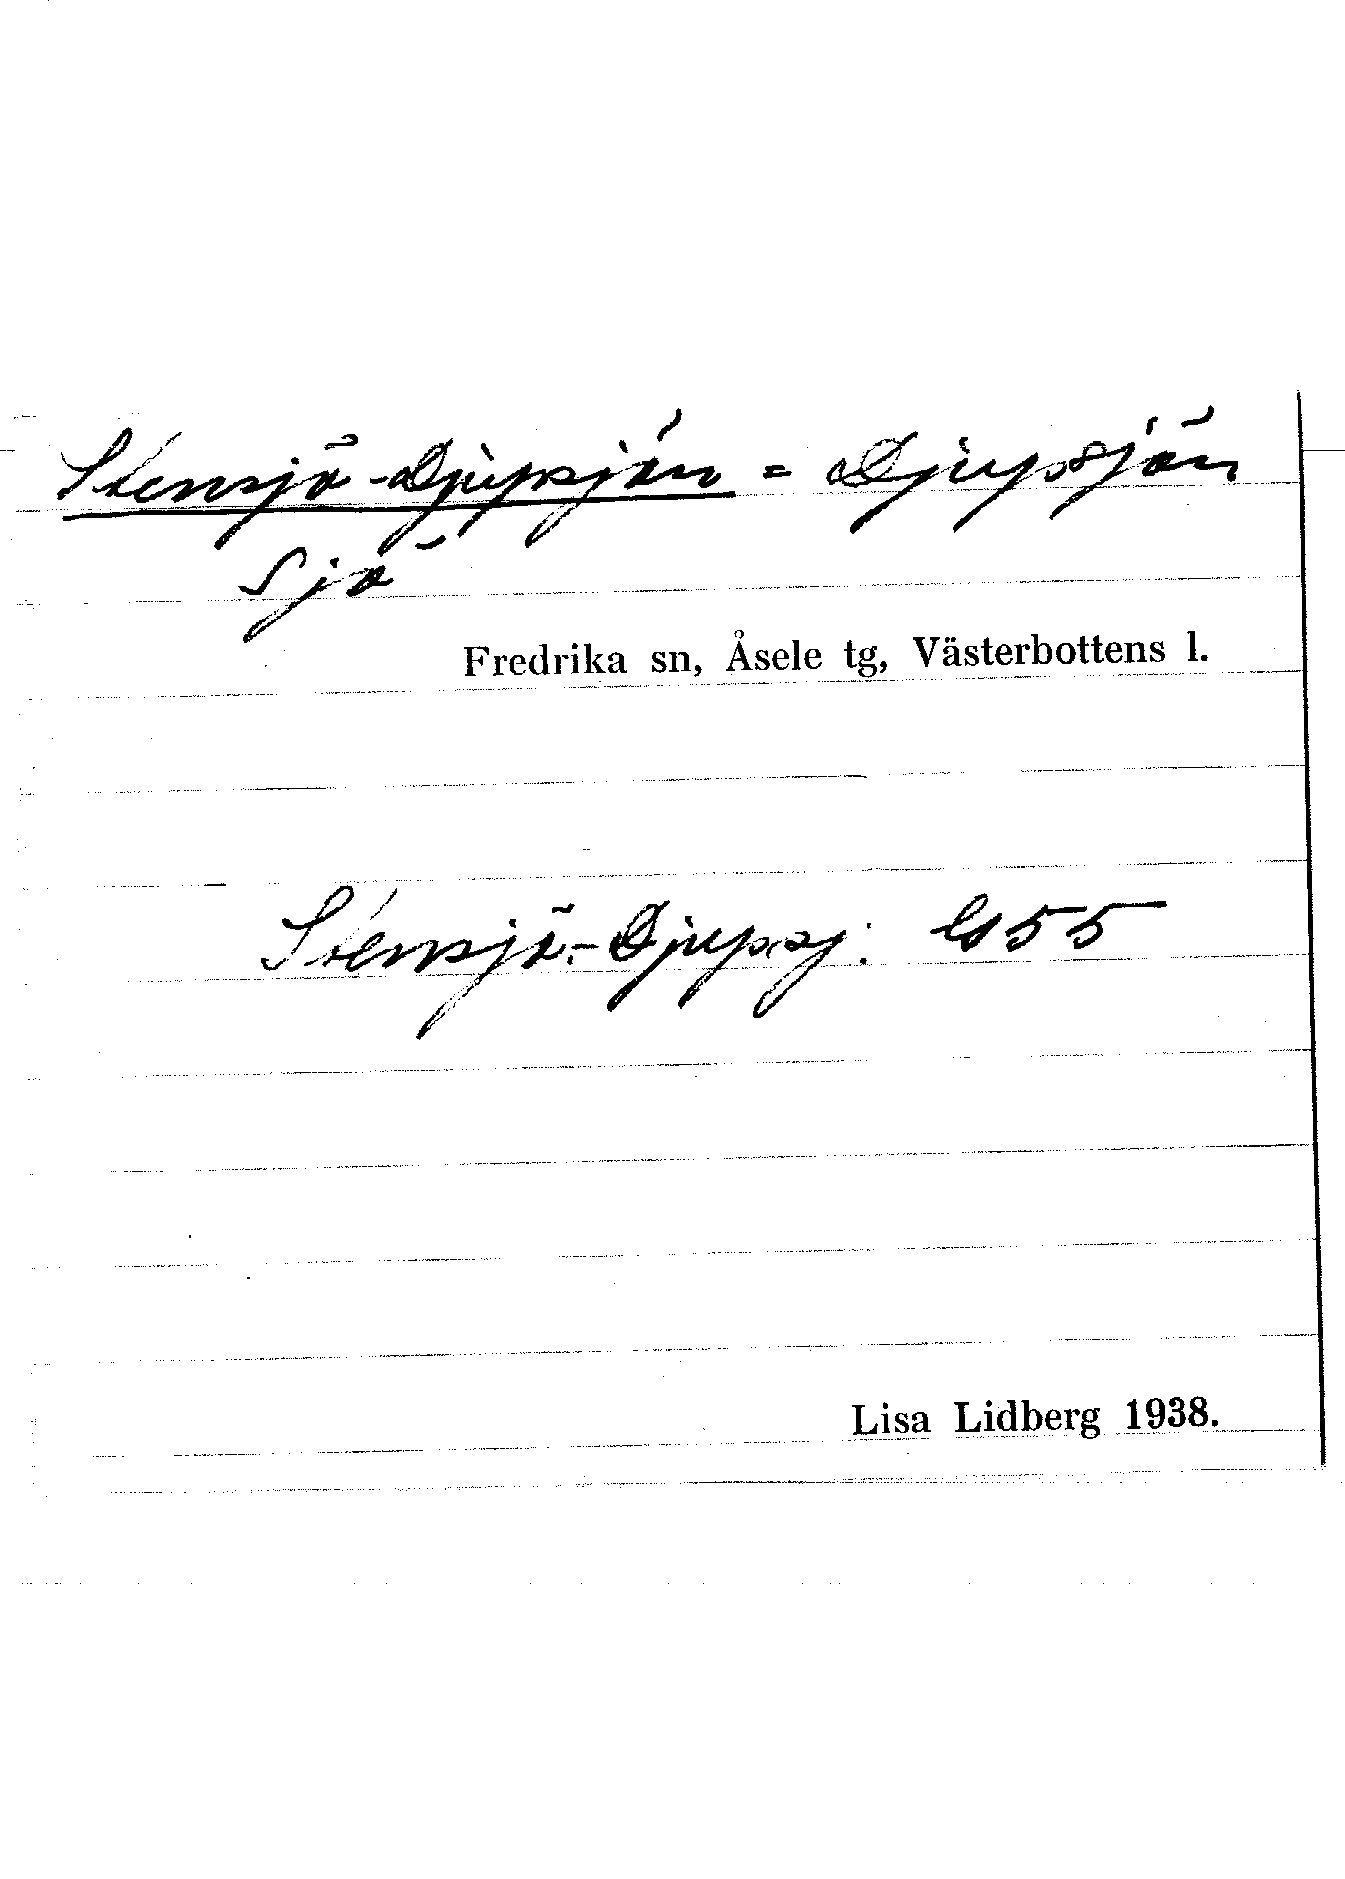 Stensjö-Djupsjön = Djupsjön
sjö
Fredrika sn, Åsele tg, Västerbottens l.
Stensjö-Djupsj: Gs 55
Lisa Lidberg 1938.